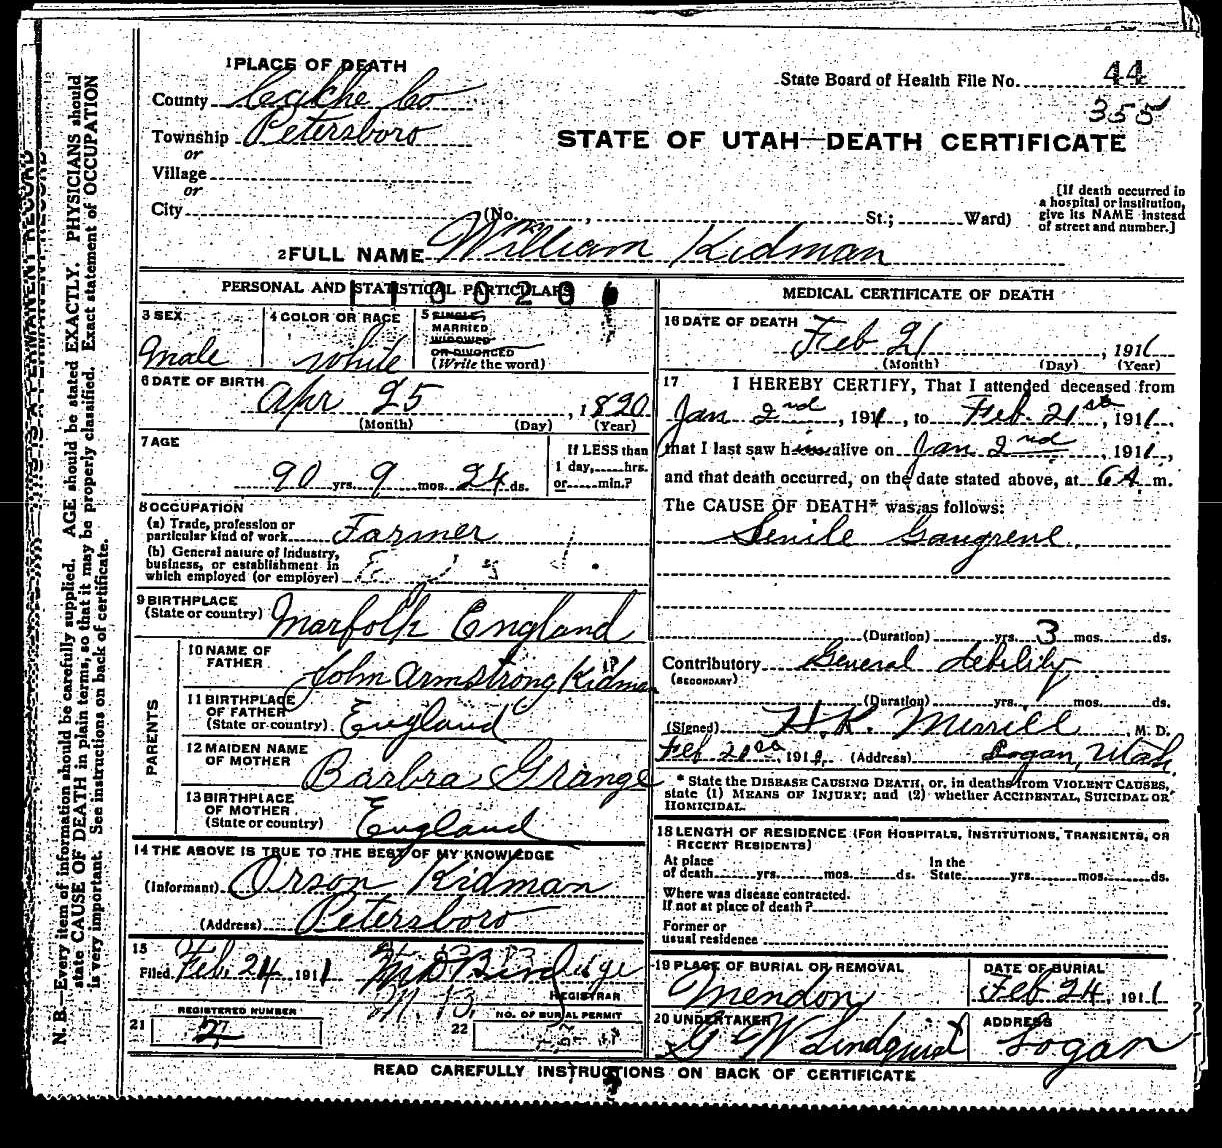 1 PLACE OF DEATH
County Cache Co
Township Petersboro
or
Village
or
City (No. , St.; Ward)
State Board of Health File No. 44
355
STATE OF UTAH—DEATH CERTIFICATE
[If death occurred in
a hospital or institution,
give its NAME instead
of street and number.]
2 FULL NAME William Kidman
PERSONAL AND STATISTICAL PARTICULARS
3 SEX
Male
4 COLOR OR RACE
White
5 SINGLE,
MARRIED
WIDOWED
OR DIVORCED
(Write the word)
6 DATE OF BIRTH
Apr 25, 1820
(Month) (Day) (Year)
7 AGE
90 yrs. 9 mos. 24 ds.
If LESS than
1 day, hrs.
or min.?
8 OCCUPATION
(a) Trade, profession or
particular kind of work Farmer
(b) General nature of industry,
business, or establishment in
which employed (or employer)
9 BIRTHPLACE
(State or country) Marfolk England
PARENTS
10 NAME OF
FATHER John Armstrong Kidman
11 BIRTHPLACE
OF FATHER
(State or country) England
12 MAIDEN NAME
OF MOTHER Barbra Grange
13 BIRTHPLACE
OF MOTHER
(State or country) England
14 THE ABOVE IS TRUE TO THE BEST OF MY KNOWLEDGE
(Informant) Orson Kidman
(Address) Petersboro
15
Filed Feb. 24 1911
REGISTRAR
21 REGISTERED NUMBER
2
22 NO. OF BURIAL PERMIT
MEDICAL CERTIFICATE OF DEATH
16 DATE OF DEATH
Feb 21, 1911
(Month) (Day) (Year)
17 I HEREBY CERTIFY, That I attended deceased from
Jan 2nd, 1911, to Feb. 21st, 1911,
that I last saw him alive on Jan 2nd, 1911,
and that death occurred, on the date stated above, at 6 A m.
The CAUSE OF DEATH* was as follows:
Senile Gangrene
(Duration) yrs. 3 mos. ds.
Contributory General debility
(SECONDARY)
(Duration) yrs. mos. ds.
(Signed) H. K. Merrill M. D.
Feb 21st, 191 (Address) Logan, Utah
* State the DISEASE CAUSING DEATH, or, in deaths from VIOLENT CAUSES,
state (1) MEANS OF INJURY; and (2) whether ACCIDENTAL, SUICIDAL OR
HOMICIDAL.
18 LENGTH OF RESIDENCE (FOR HOSPITALS, INSTITUTIONS, TRANSIENTS, OR
RECENT RESIDENTS)
At place
of death yrs. mos. ds.
In the
State yrs. mos. ds.
Where was disease contracted.
If not at place of death?
Former or
usual residence
19 PLACE OF BURIAL OR REMOVAL
Mendon
DATE OF BURIAL
Feb 24, 1911
20 UNDERTAKER
G W Lindquist
ADDRESS
Logan
READ CAREFULLY INSTRUCTIONS ON BACK OF CERTIFICATE
N. B.—Every item of information should be carefully supplied. AGE should be stated EXACTLY. PHYSICIANS should
state CAUSE OF DEATH in plain terms, so that it may be properly classified. Exact statement of OCCUPATION
is very important. See instructions on back of certificate.